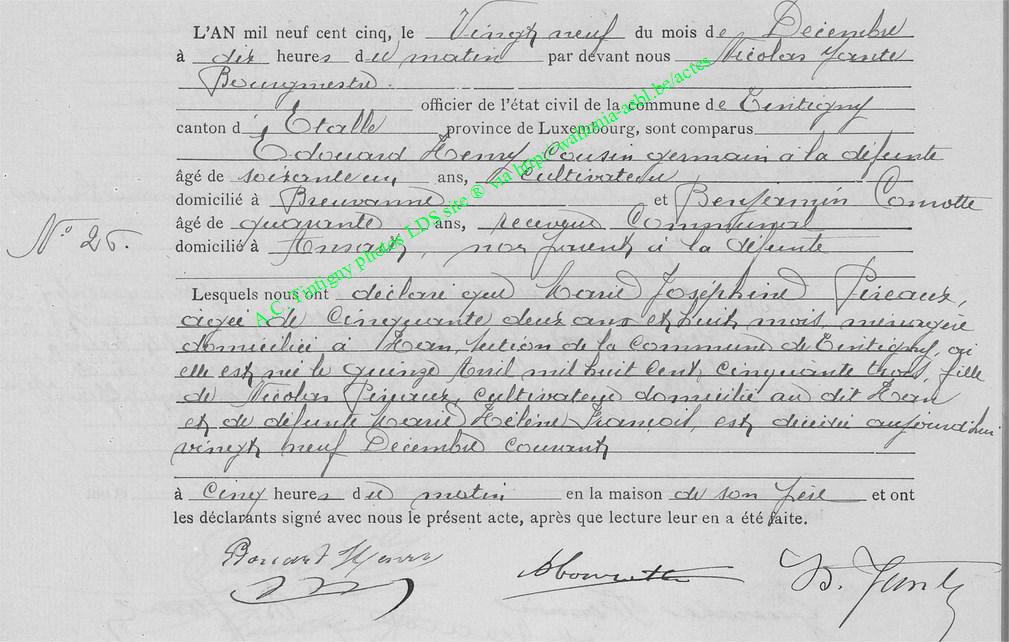 L'AN mil neuf cent cinq, le Vingt neuf du mois de Décembre
à dix heures du matin par devant nous Nicolas Jante
Bourgmestre
officier de l'état civil de la commune de Tintigny
canton d'Etalle province de Luxembourg, sont comparus
Edouard Henry Cousin germain à la défunte
âgé de soixante un ans, Cultivateur
domicilié à Breuvanne et Benjamin Comotte
âgé de quarante ans, receveur Communal
N° 26.
domicilié à Ansart, non parent à la défunte
Lesquels nous ont déclaré que Marie Joséphine Pireaux,
agée de Cinquante deux ans et huit mois, ménagère
domiciliée à Han, section de la Commune de Tintigny, où
elle est née le quinze Avril mil huit Cent Cinquante trois, fille
de Nicolas Pireaux, Cultivateur domicilié au dit Han
et de défunte Marie Hélène François, est décédée aujourd'hui
vingt neuf Décembre courant
à Cinq heures du matin en la maison de son père et ont
les déclarants signé avec nous le présent acte, après que lecture leur en a été faite.
Edouard Henry
N. Jante
A.C. Tintigny photos LDS site ® via http://wallonia-asbl.be/actes